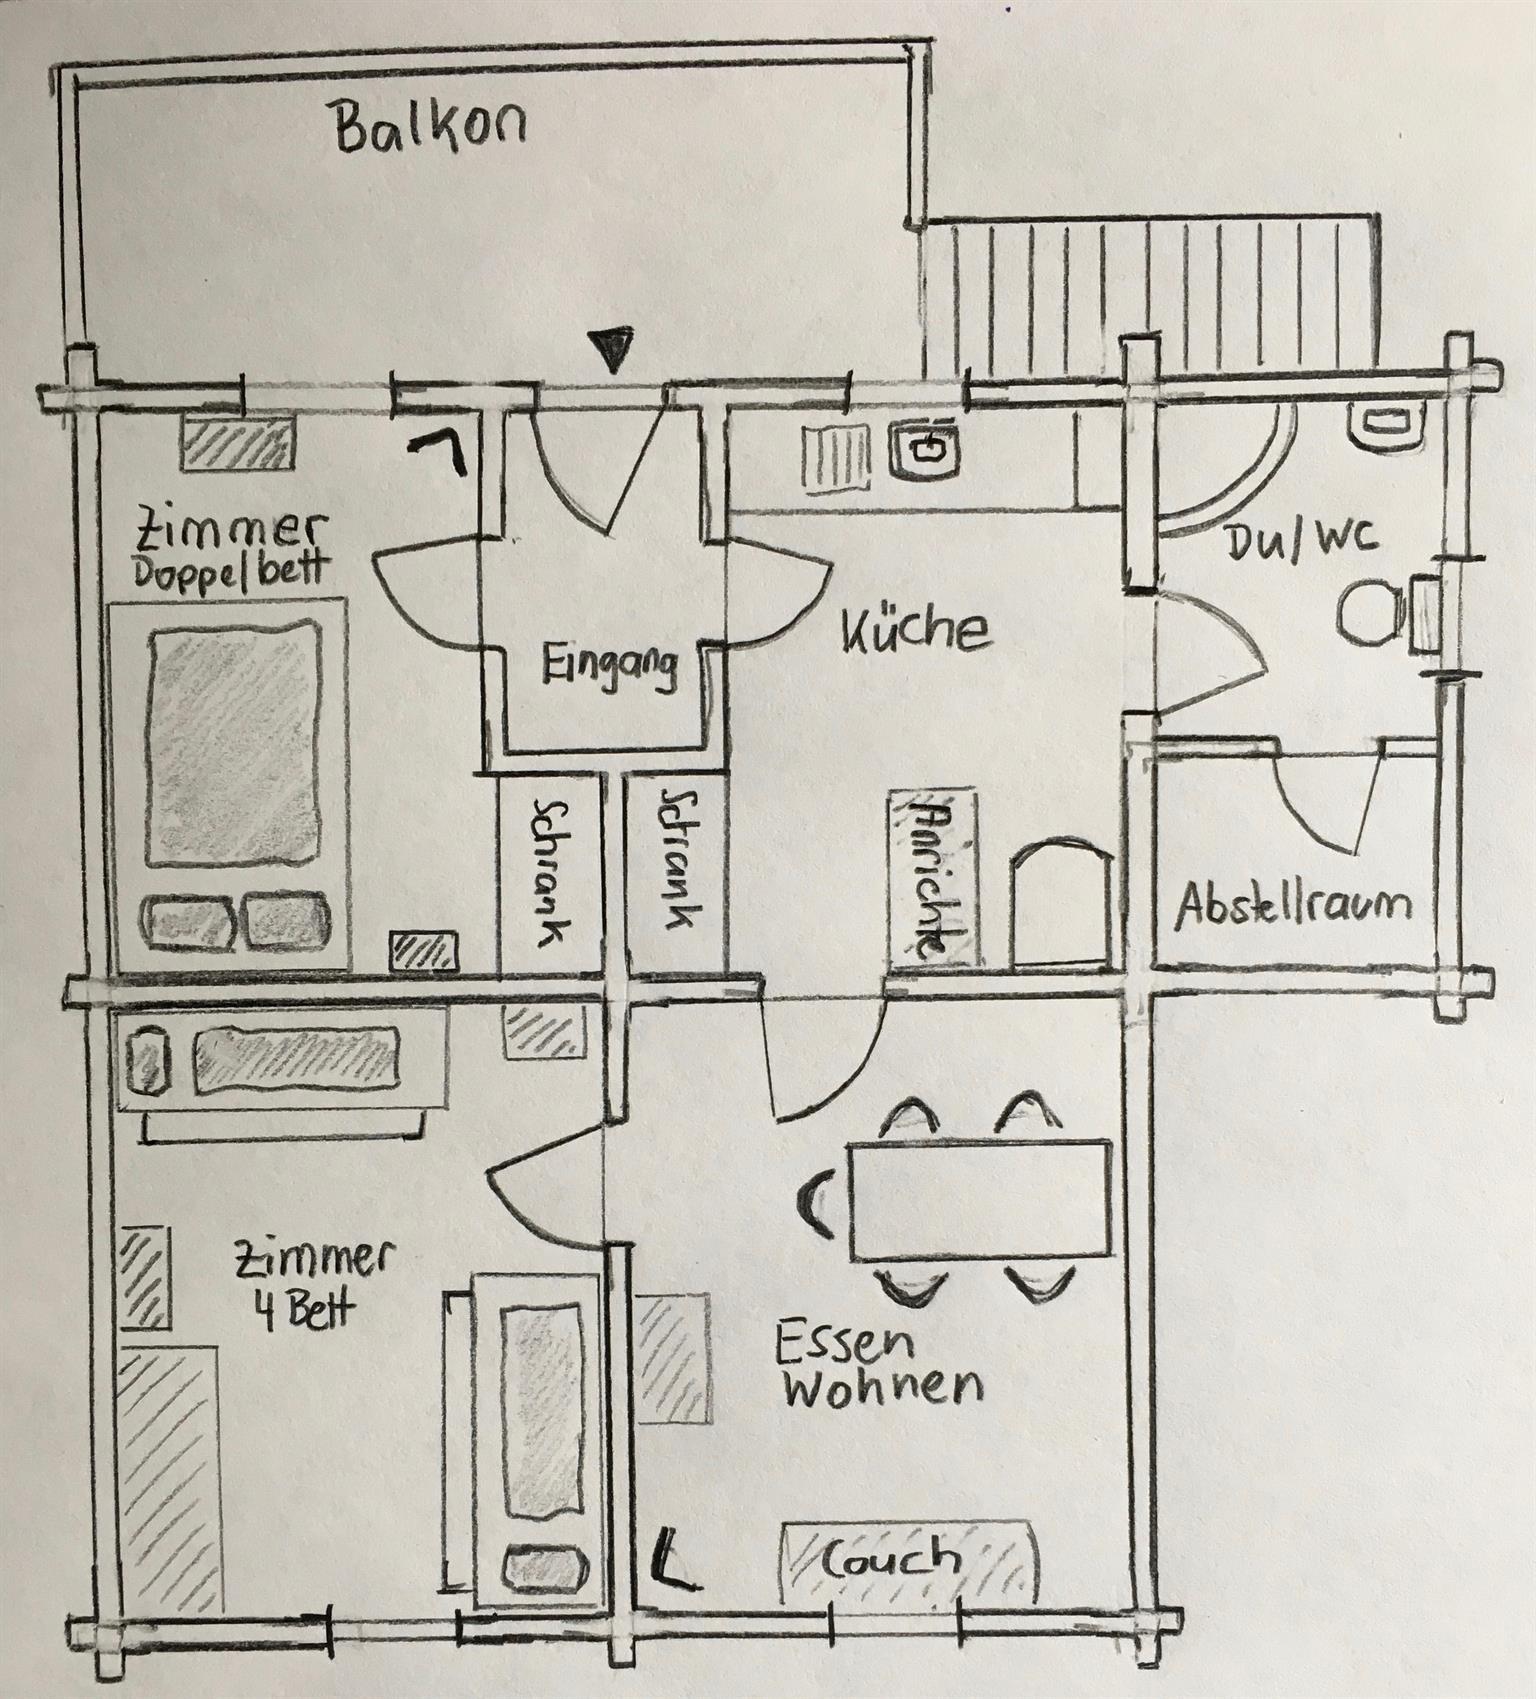 Balkon
Zimmer
Doppelbett
Eingang
Küche
Du/WC
Schrank
Schrank
Anrichte
Abstellraum
Zimmer
4 Bett
Essen
Wohnen
Couch